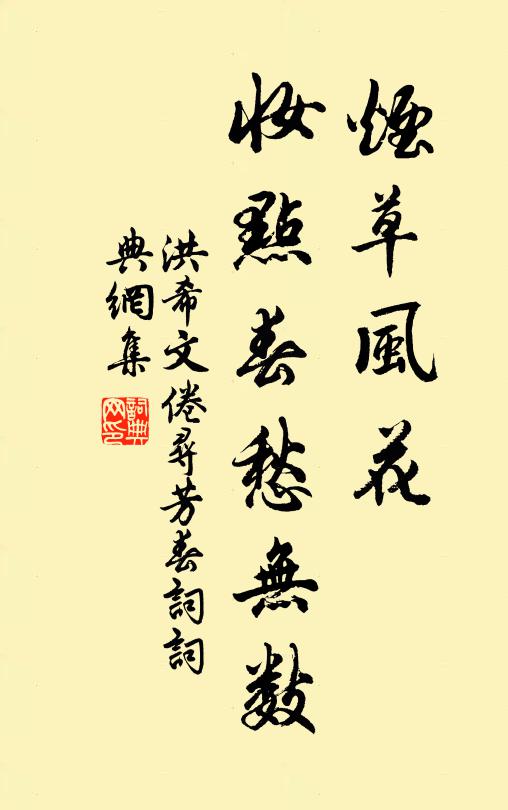 煙草風花
妝點春愁無數
洪希文倦尋芳春詞詞
典網集
詞典
网印